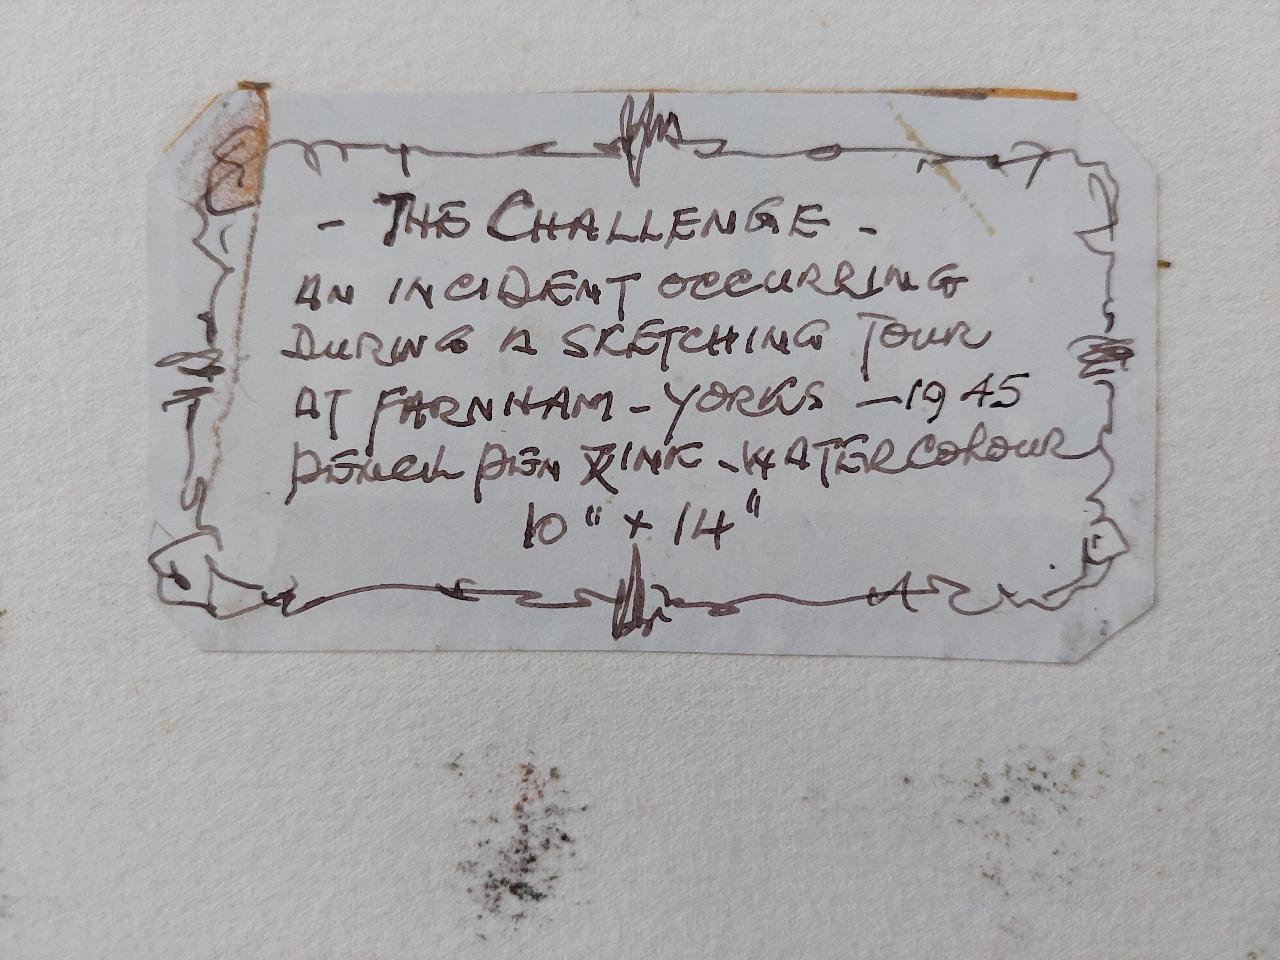 - THE CHALLENGE -
AN INCIDENT OCCURRING
DURING A SKETCHING TOUR
AT FARNHAM - YORKS - 1945
PENCIL PEN & INK - WATERCOLOUR
10" x 14"